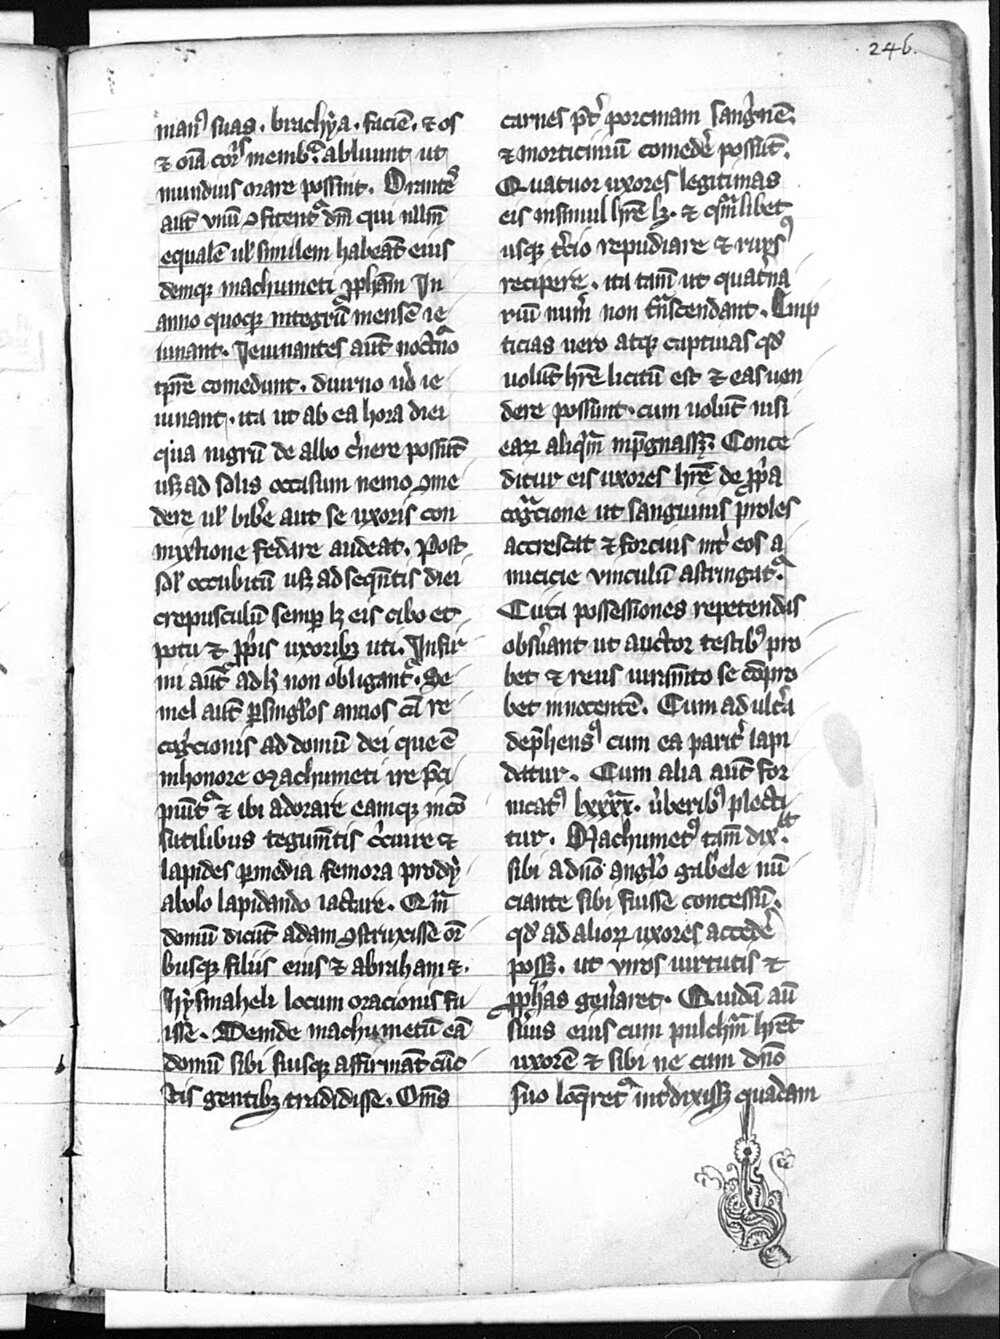 246.
man⁹ suas. brachya. faciē. ⁊ os
⁊ oīa corꝑis membra abluunt ut
mundius orare possint. Orantes
aut̄ vnū ꝯfitentᷣ dm̄ qui nllm̄
equalē ul̓ similem habeat̄ eius
demqꝫ machumeti ꝓpham̄ In
anno quoqꝫ integrū mensē ie
iunant. Ieiunantes aut̄ noct̓no
tpr̄e comedunt. diurno v̓o ie
iunant. ita ut ab ea hora diei
q̓ua nigrū de albo c̓nere possūt
usqꝫ ad solis occasum nemo ꝯme
dere ul̓ bib̓e aut se uxoris con
mixtione fedare audeat. Post
sol̓ occubitū usqꝫ ad seqn̄tis diei
crepusculū semꝑ lꝫ eis cibo et
potu ⁊ ꝓpͥis uxoribꝫ uti. Infir
mi aut̄ ad hͦ non obligantᷣ. Se
mel aut̄ ꝑ singl̓os annos cā re
cog̓cionis ad domū dei que ē
in honore Machumeti ire p̄ci
piuntᷣ ⁊ ibi adorare eamqꝫ incō
sutilibus tegumn̄tis c̓cuire ⁊
lapides ꝑ media femora pro dy
abolo lapidando iactare. Qm̄
domū dicūt adam ꝯstruxisse oī
busqꝫ filiis eius ⁊ abraham ⁊
hysmaheli locum oracionis fu
isse. Deinde machumetū eā
domū sibi suisqꝫ affirmāt cūc
tis gentibꝫ tradidisse. Om̄s
carnes pt̓ porcinam sang̓nē.
⁊ morticiniū comed̓e possūt.
Quatuor uxores legitimas
eis insimul hr̄e lꝫ. ⁊ qm̄libet
usqꝫ tc̓io repudiare ⁊ rurs⁹
recipere. ita tam̄ ut quat̓na
riū num̓ non trāscendant. Emp
ticias uero atqꝫ captiuas qd̓
uolūt hr̄e licitū est ⁊ eas uen
dere possunt. cum uolūt nisi
eaꝝ aliqm̄ inp̄gnassꝫ. Conce
ditur eis uxores hr̄e de ꝓpͥa
cog̓cione ut sanguinis proles
accrescat ⁊ forcius int̓ eos a
micicie vinculū astringatᷣ.
Circa possessiones repetendas
obs̓uant ut auctor testibꝫ pro
bet ⁊ reus iuram̄to se cōpro
bet innocentē. Cum adult̓a
dep̄hens⁹ cum ea parit̓ lapi
datur. Cum alia aut̄ for
nicat⁹ lxxx. v̓beribꝫ plecti
tur. Machumet⁹ tam̄ dixit
sibi a dn̄o angl̓o gab̓ele nū
ciante sibi fuisse concessū.
qd̓ ad alioꝝ uxores acced̓e
possꝫ. ut viros uirtutis ⁊
ꝓphas gen̓aret. Quidā aū
s̓uus eius cum pulchrā hr̄et
uxorē ⁊ sibi ne cum dn̄o
suo loqr̄etᷣ int̓dixissꝫ quadam